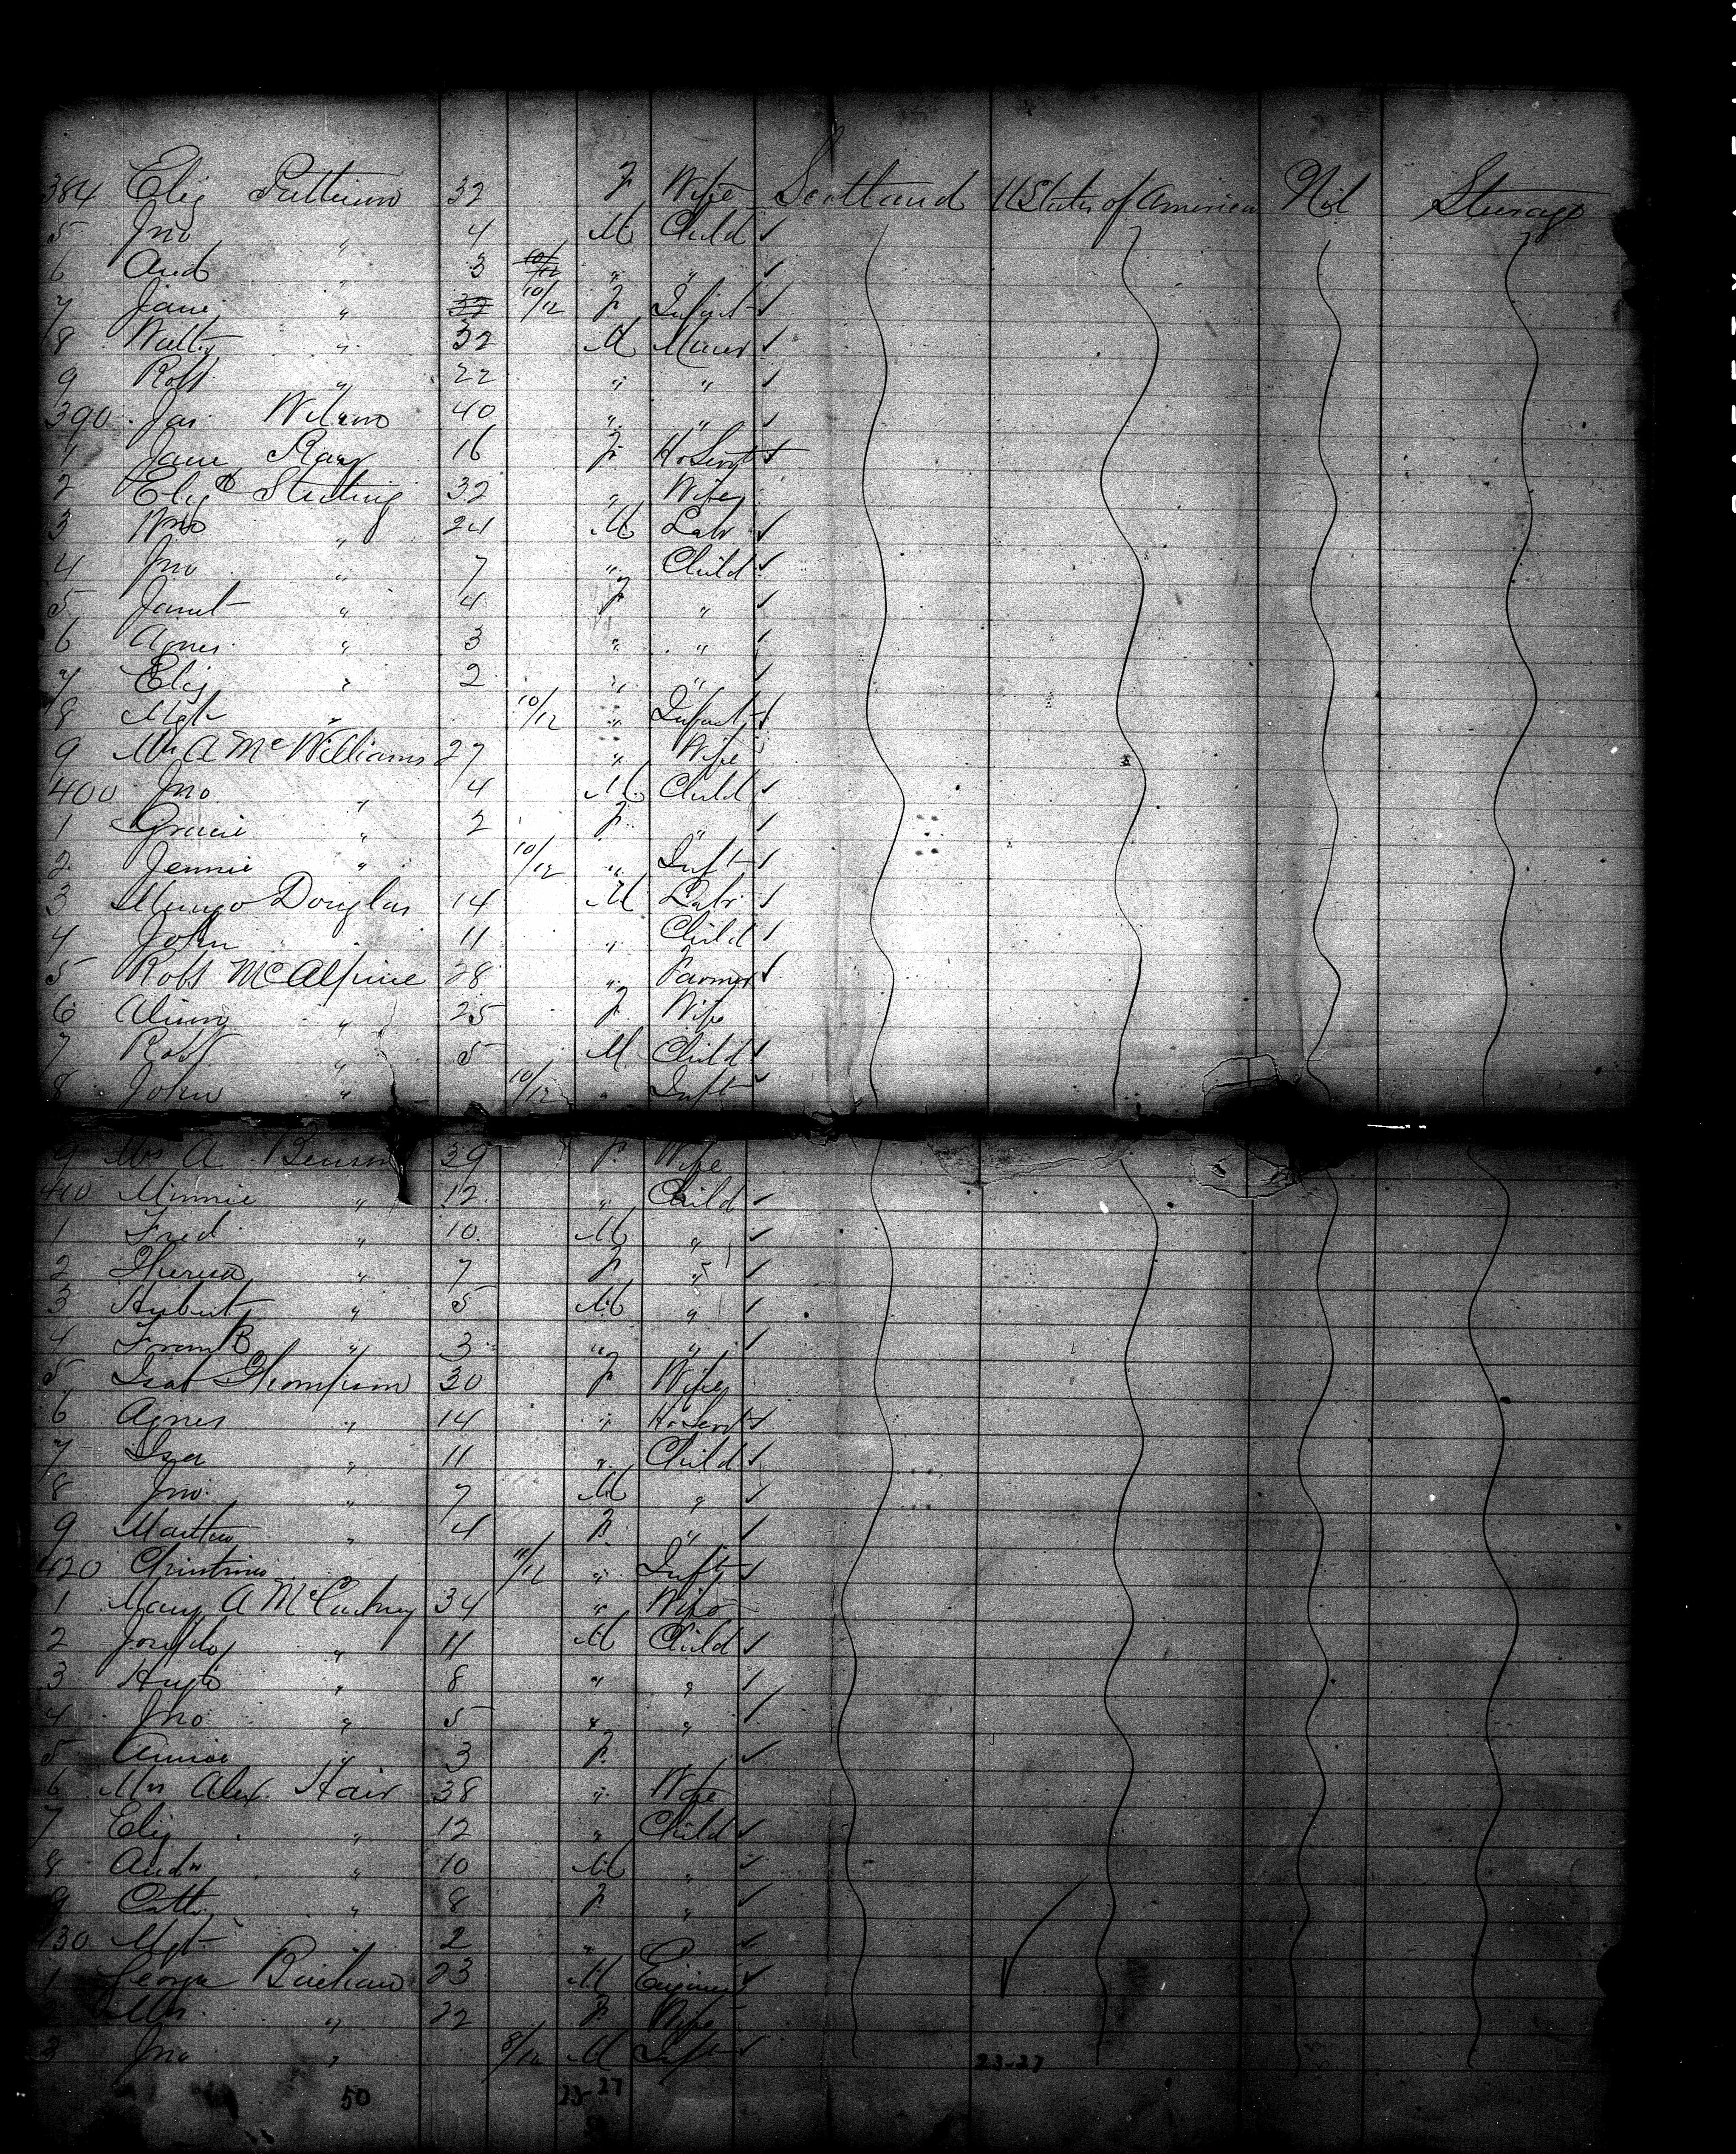 384 Eliz Pattison 32 F Wife Scotland U States of America Nil Steerage
5 Jno " 4 M Child ✓
6 And " 3 10/12 " " ✓
7 Jane " 32 10/12 F Infant ✓
8 Walter " 32 M Miner ✓
9 Robt " 22 " " ✓
390 Jas Wilson 40 " " ✓
1 Jane Ray 16 F Ho Servt ✓
2 Elizth Stirling 32 " Wife
3 Wm " 24 M Labr ✓
4 Jno " 7 " Child ✓
5 Janet " 4 F " ✓
6 Agnes " 3 " " ✓
7 Eliz " 2 " " ✓
8 Mgt " 10/12 " Infant ✓
9 Mrs A McWilliams 27 " Wife
400 Jno " 4 M Child ✓
1 Gracie " 2 F " ✓
2 Jennie " 10/12 " Inft ✓
3 Mungo Douglas 14 M Labr ✓
4 John 11 " Child ✓
5 Robt McAlpine 28 " Farmer ✓
6 Alison " 25 F Wife
7 Robt " 5 M Child ✓
8 John " 10/12 " Inft ✓
9 Mrs A Benson 39 F Wife
410 Minnie " 12 " Child ✓
1 Fred " 10 M " ✓
2 Theresa " 7 F " ✓
3 Hubert " 5 M " ✓
4 Frank " 3 " " ✓
5 Isab Thompson 30 F Wife
6 Agnes " 14 " Ho Servt ✓
7 Isa " 11 " Child ✓
8 Jno " 7 M " ✓
9 Martha " 4 F " ✓
420 Christina 11/12 " Inft ✓
1 Mary A McCartney 34 " Wife
2 Joseph " 11 M Child ✓
3 Hugh " 8 " " ✓
4 Jno " 5 " " ✓
5 Annie " 3 F ✓
6 Mrs Alex Hair 38 " Wife
7 Eliz " 12 " Child ✓
8 Andw " 10 M " ✓
9 Cath " 8 F " ✓
430 Mgt 2 " ✓
1 George 23 M Engineer ✓
2 Mrs " 22 F Wife
3 Jno " 8/12 M Inft ✓
23-27
50 23-27